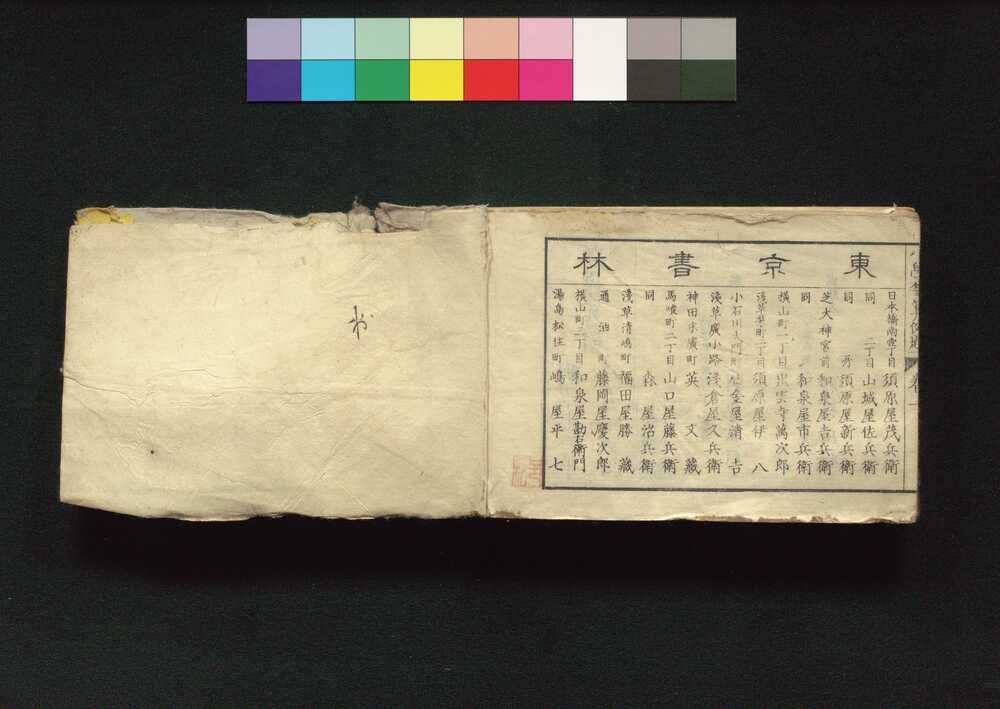 東京書林
日本橋南壹丁目 須原屋茂兵衛
同 二丁目 山城屋佐兵衛
同 須原屋新兵衛
芝大神宮前 和泉屋吉兵衛
同 和泉屋市兵衛
横山町一丁目 出雲寺萬次郎
淺草茅町二丁目 須原屋伊八
小石川大門町 鴈金屋清吉
淺草廣小路 淺倉屋久兵衛
神田末廣町 英文藏
馬喰町二丁目 山口屋藤兵衛
同 森屋治兵衛
淺草清嶋町 福田屋勝藏
通油町 藤岡屋慶次郎
横山町二丁目 和泉屋勘右衛門
湯島松住町 嶋屋平七